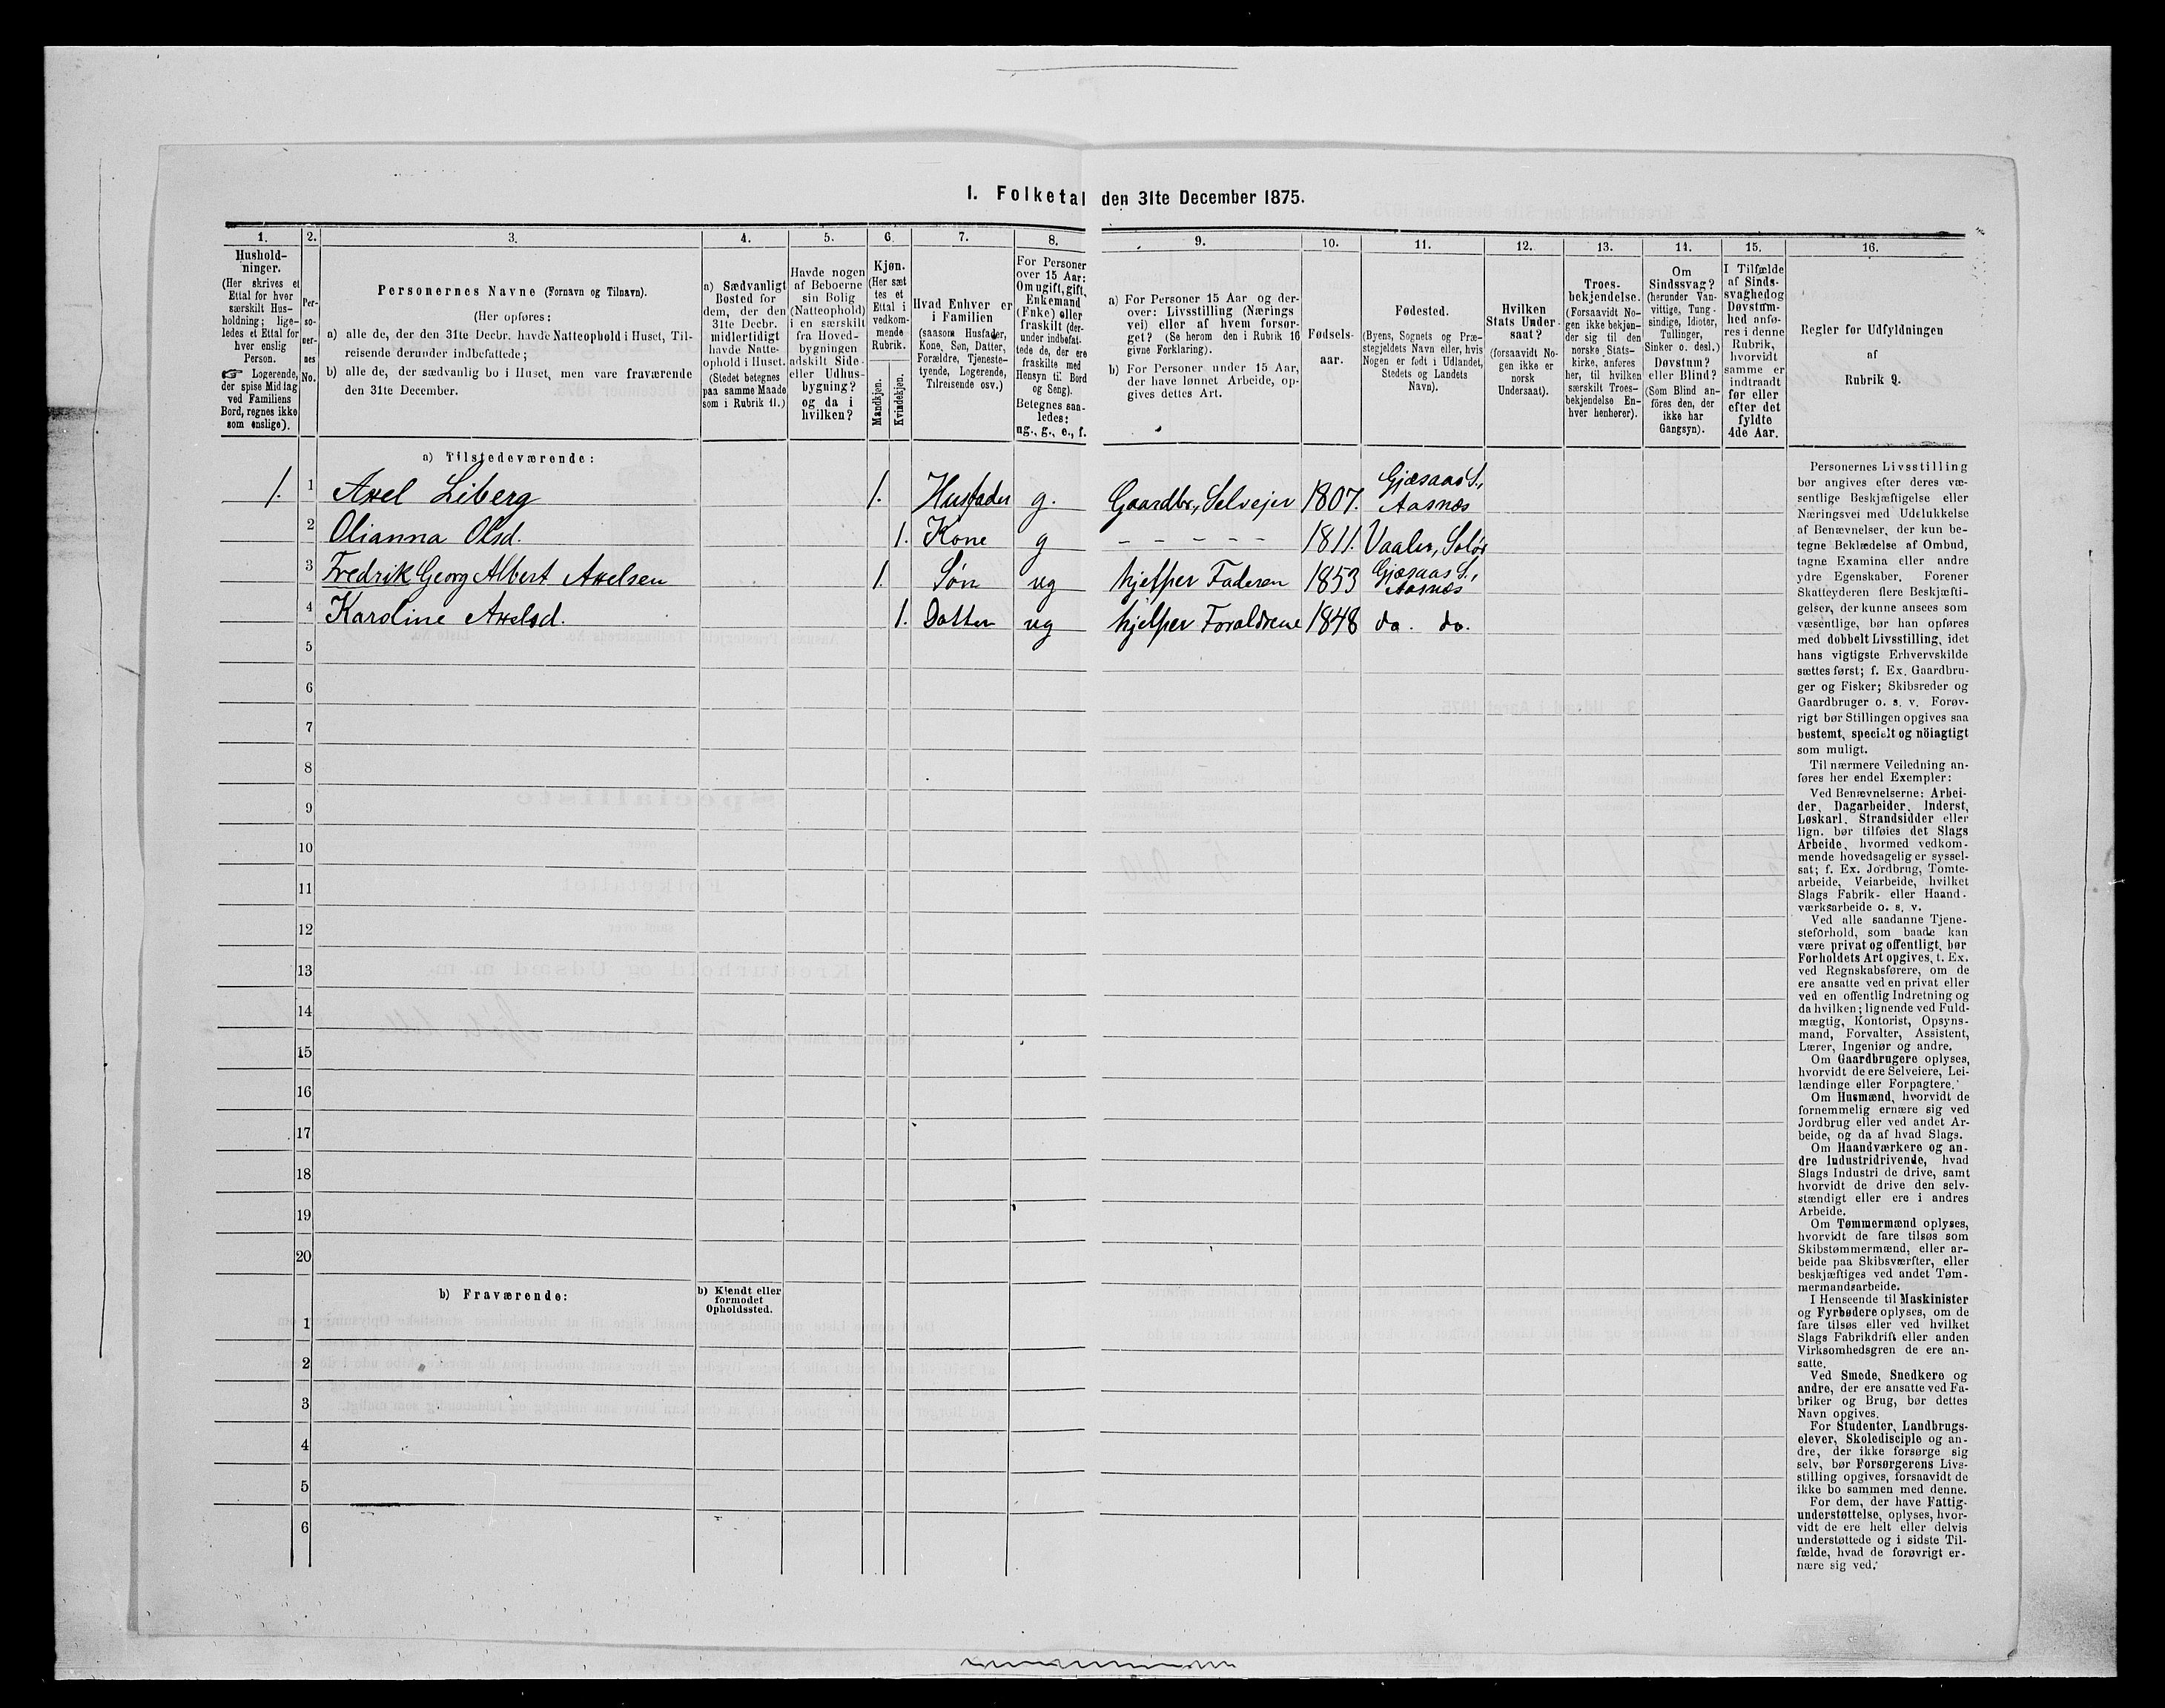 1. Folketal den 31te December 1875.
1.
2.
3.
4.
5.
6.
7.
8.
9.
10.
11.
12.
13.
14.
15.
16.
Hushold-
ninger.
(Her skrives et
Ettal for hver
særskilt Hus-
holdning; lige-
ledes et Ettal for
hver enslig
Person.
☞ Logerende,
der spise Middag
ved Familiens
Bord, regnes ikke
som enslige).
Per-
so-
ner-
nes
No.
Personernes Navne (Fornavn og Tilnavn).
(Her opføres:
a) alle de, der den 31te Decbr. havde Natteophold i Huset, Til-
reisende derunder indbefattede;
b) alle de, der sædvanlig bo i Huset, men vare fraværende
den 31te December.
a) Sædvanligt
Bosted for
dem, der den
31te Decbr.
midlertidigt
havde Natte-
ophold i Huset.
(Stedet betegnes
paa samme Maade
som i Rubrik 11.)
Havde nogen
af Beboerne
sin Bolig
(Natteophold)
i en særskilt
fra Hoved-
bygningen
adskilt Side-
eller Udhus-
bygning?
og da i
hvilken?
Kjøn.
(Her sæt
tes et
Ettal i
vedkom-
mende
Rubrik.
Mandkjøn.
Kvindekjøn.
Hvad Enhver er
i Familien
(saasom Husfader,
Kone, Søn, Datter,
Forældre, Tjeneste-
tyende, Logerende,
Tilreisende osv.)
For Personer
over 15 Aar:
Om ugift, gift,
Enkemand
(Enke) eller
fraskilt (der-
under indbefat-
tede de, der ere
fraskilte med
Hensyn til Bord
og Seng).
Betegnes saa-
ledes:
ug., g., e., f.
a) For Personer 15 Aar og der-
over: Livsstilling (Nærings
vei) eller af hvem forsør-
get? (Se herom den i Rubrik 16
givne Forklaring).
b) For Personer under 15 Aar,
der have lønnet Arbeide, op-
gives dettes Art.
Fødsels-
aar.
Fødested.
(Byens, Sognets og Præ-
stegjeldets Navn eller, hvis
Nogen er født i Udlandet,
Stedets og Landets
Navn).
Hvilken
Stats Under-
saat?
(forsaavidt No-
gen ikke er
norsk
Undersaat).
Troes-
bekjendelse.
(Forsaavidt No-
gen ikke bekjen-
der sig til den
norske Stats-
kirke, anføres
her, til hvilken
særskilt Troes-
bekjendelse En-
hver henhører).
Om
Sindssvag?
(herunder Van-
vittige, Tung-
sindige, Idioter,
Tullinger,
Sinker o. desl.)
Døvstum?
eller Blind?
(Som Blind an-
föres den, der
ikke har
Gangsyn).
I Tilfælde
af Sinds-
svaghed og
Døvstum-
hed anfø-
res i denne
Rubrik,
hvorvidt
samme er
indtraadt
før eller
efter det
fyldte
4de Aar.
Regler for Udfyldningen
af
Rubrik 9.
a) Tilstedeværende:
1. 1 Axel Liberg 1. Husfader g. Gaardbr., Selvejer 1807. Gjæsaas S., Aasnæs
2 Olianna Olsd. 1. Kone g – – – – – 1811. Vaaler, Solör
3 Fredrik Georg Albert Axelsen 1. Søn ug hjelper Faderen 1853 Gjæsaas S., Aasnæs
4 Karoline Axelsd. 1. Datter ug hjelper Foraldrene 1848 do. do.
5
6
7
8
9
10
11
12
13
14
15
16
17
18
19
20
b) Fraværende:
b) Kjendt eller
formodet
Opholdssted.
1
2
3
4
5
6
Personernes Livsstilling
bør angives efter deres væ-
sentlige Beskjæftigelse eller
Næringsvei med Udelukkelse
af Benævnelser, der kun be-
tegne Beklædelse af Ombud,
tagne Examina eller andre
ydre Egenskaber. Forener
Skatteyderen flere Beskjæfti-
gelser, der kunne ansees som
væsentlige, bør han opføres
med dobbelt Livsstilling, idet
hans vigtigste Erhvervskilde
sættes først; f. Ex. Gaardbru-
ger og Fisker; Skibsreder og
Gaardbruger o. s. v. Forøv-
rigt bør Stillingen opgives saa
bestemt, specielt og nöiagtigt
som muligt.
Til nærmere Veiledning an-
føres her endel Exempler:
Ved Benævnelserne: Arbei-
der, Dagarbeider, Inderst,
Løskarl, Strandsidder eller
lign. bør tilføies det Slags
Arbeide, hvormed vedkom-
mende hovedsagelig er syssel-
sat; f. Ex. Jordbrug, Tomte-
arbeide, Veiarbeide, hvilket
Slags Fabrik- eller Haand-
værksarbeide o. s. v.
Ved alle saadanne Tjene-
steforhold, som baade kan
være privat og offentligt, bør
Forholdets Art opgives, t. Ex.
ved Regnskabsførere, om de
ere ansatte ved en privat eller
ved en offentlig Indretning og
da hvilken; lignende ved Fuld-
mægtig, Kontorist, Opsyns-
mand, Forvalter, Assistent,
Lærer, Ingeniør og andre.
Om Gaardbrugere oplyses,
hvorvidt de ere Selveiere, Lei-
lændinge eller Forpagtere.
Om Husmænd, hvorvidt de
fornemmelig ernære sig ved
Jordbrug eller ved andet Ar-
beide, og da af hvad Slags.
Om Haandværkere og an-
dre Industridrivende, hvad
Slags Industri de drive, samt
hvorvidt de drive den selv-
stændigt eller ere i andres
Arbeide.
Om Tømmermænd oplyses,
hvorvidt de fare tilsøs som
Skibstømmermænd, eller ar-
beide paa Skibsværfter, eller
beskjæftiges ved andet Tøm-
mermandsarbeide.
I Henseende til Maskinister
og Fyrbødere oplyses, om de
fare tilsøs eller ved hvilket
Slags Fabrikdrift eller anden
Virksomhedsgren de ere an-
satte.
Ved Smede, Snedkere og
andre, der ere ansatte ved Fa-
briker og Brug, bør dettes
Navn opgives.
For Studenter, Landbrugs-
elever, Skoledisciple og an-
dre, der ikke forsørge sig
selv, bør Forsørgerens Livs-
stilling opgives, forsaavidt de
ikke bo sammen med denne.
For dem, der have Fattig-
understøttelse, oplyses, hvor-
vidt de ere helt eller delvis
understøttede og i sidste Til-
fælde, hvad de forøvrigt er-
nære sig ved.